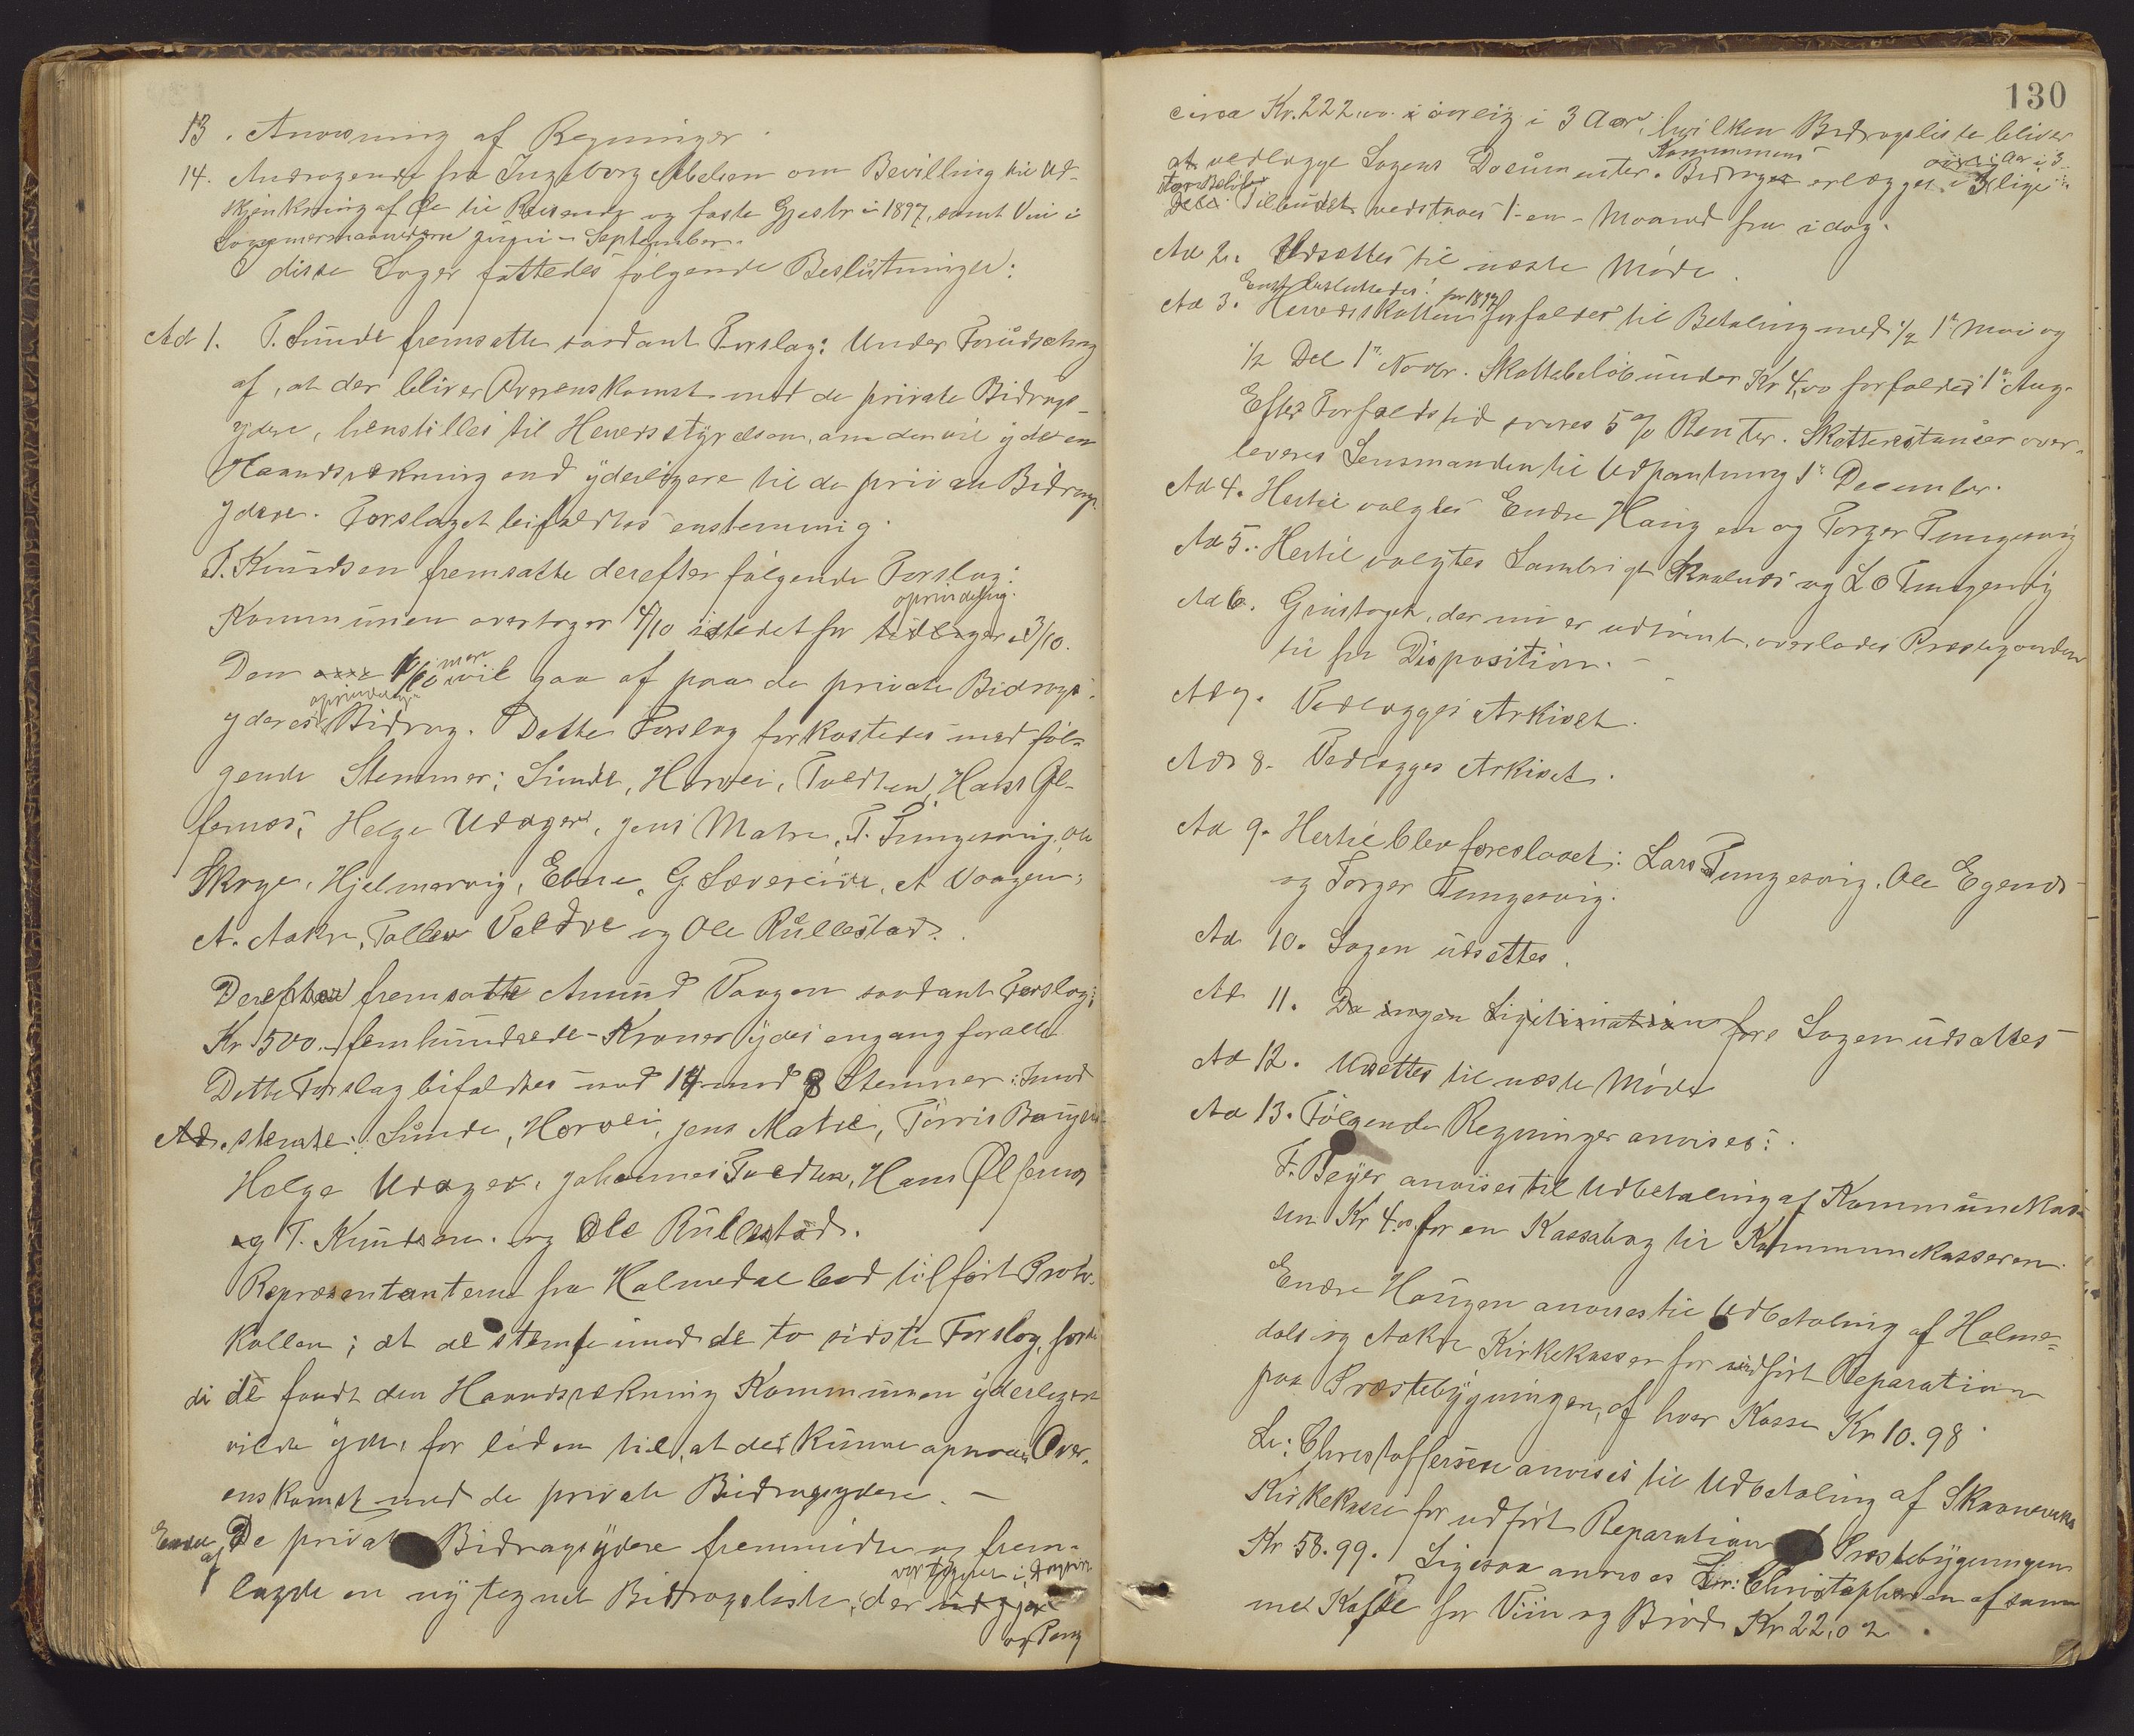 13. Anvisning af Regninger.
14. Andragende fra Ingeborg om Bevilling til Ud-
skjenkning af Øl til Reisende og faste Gjester i 1897, samt Vin i
Sommermaanederne Juni - September.
I disse Sager fattedes følgende Beslutninger:
Ad 1. T. Sunde fremsatte saadant Forslag: Under Forudsætning
af, at der bliver Overenskomst med de private Bidrags-
ydere, henstilles til Herredsstyrelsen, om den vil yde en
Haandsrækning end yderligere til de private Bidrags-
ydere. Forslaget bifaldtes enstemmig.
T. Knudsen fremsatte derefter følgende Forslag:
oprindelig
Kommunen overtager 4/10 istedet for tidligere 3/10.
Den 1/10 mere vil gaa af paa de private Bidrags-
oprindelige
yderes Bidrag. Dette Forslag forkastedes med føl-
gende Stemmer: Sunde, Hervei, Tvedten, Hans Øl-
fernes, Helge Udager, Jens Matre, T. Tungesvig, Ole
Skrye, Hjelmervig, Ebne, G. Sævereide, A Vaagen,
A. Aakre, Tallev Valdre og Ole Rullestad.
Derefter fremsatte Amund Vaagen saadant Forslag:
Kr 500 - femhundrede - Kroner ydes engang for alle
Dette Forslag bifaldtes med 14 mod 8 Stemmer: Imod
Ad. stemte: Sunde, Hervei, Jens Matre, Tørris Baugen
Helge Udager, Johannes Tvedten, Hans Ølfernes
og T. Knudsen. og Ole Rullestad.
Repræsentanterne fra Holmedal lod tilført Proto-
kollen; at de stemte imod de to sidste Forslag, for
di de fandt den Haandsrækning Kommunen yderligere
vilde yde, for liden til, at der kunne opnaaes Over-
enskomst med de private Bidragsydere. -
Endel af De private Bidragsydere fremmødte og frem-
lagde en ny tegnet Bidragsliste, der udgjør
130
circa Kr. 222,00 aarlig i 3 Aar, hvilken Bidragsliste bliver
Kommunens
at vedlægge Sagens Documenter. Bidraget erlægges i 3 lige
Dele. Tilbudet vedstaaes 1 - en - Maaned fra idag.
Ad 2. Udsættes til næste Møde.
Enst. besluttedes: for 1897
Ad 3. Herredsskatten forfalder til Betaling med 1/2 1ste Mai og
1/2 Del 1ste Novbr. Skattebeløb under Kr 4,00 forfalder 1ste Aug.
Efter Forfaldstid svares 5% Renter. Skatterestancer over-
leveres Lensmanden til Udpantning 1ste December.
Ad 4. Hertil valgtes Endre Haugen og Torger Tungesvig
Ad 5. Hertil valgtes Lambrigt Skaalnes og L O Tungesvig
Ad 6. Grustaget, der nu er udtømt, overlades Præstegaarden
til fri Disposition.
Ad 7. Vedlægges Arkivet.
Ad 8. Vedlægges Arkivet.
Ad 9. Hertil blev foreslaaet: Lars Tungesvig, Ole Egenes
og Torger Tungesvig.
Ad 10. Sagen udsættes.
Ad 11. Da ingen Ligitimation fore Sagen udsættes
Ad 12. Udsættes til næste Møde
Ad 13. Følgende Regninger anvises:
F. Beyer anvises til Udbetaling af Kommunekas-
sen Kr 4.00 for en Kassabog til Kommunekasseren.
Endre Haugen anvises til Udbetaling af Holme-
dals og Aakre Kirkekasser for udført Reparation
paa Præstebygningen, af hver Kasse Kr 10.98
Lr: Christoffersen anvises til Udbetaling af Skaanevik
Kirkekasse for udført Reparation Præstebygningen
Kr 58.99. Ligesaa anvises Lr: Christophersen af sam-
me Kasse for Viin og Brød Kr 22,02